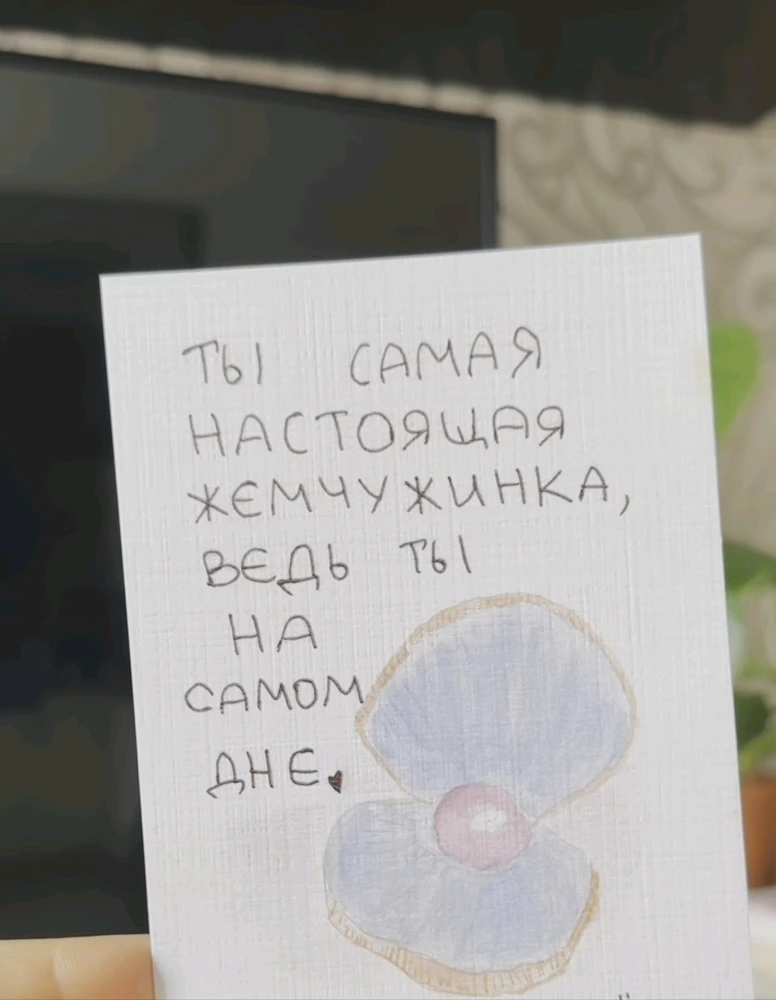 ТЫ САМАЯ
НАСТОЯЩАЯ
ЖЕМЧУЖИНКА,
ВЕДЬ ТЫ
НА
САМОМ
ДНЕ